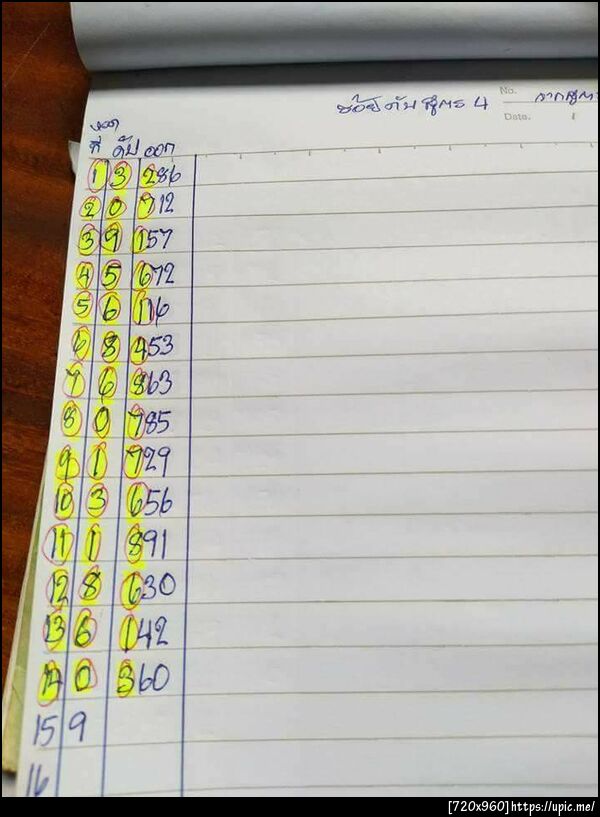 No.
ร้อยดับ สูตร 4
Date.
งวด
ที่ ดับ ออก
1 3 286
2 0 712
3 9 157
4 5 672
5 6 116
6 8 453
7 6 863
8 0 785
9 1 729
10 3 656
11 1 891
12 8 630
13 6 142
14 0 360
15 9
16
[720x960]https://upic.me/